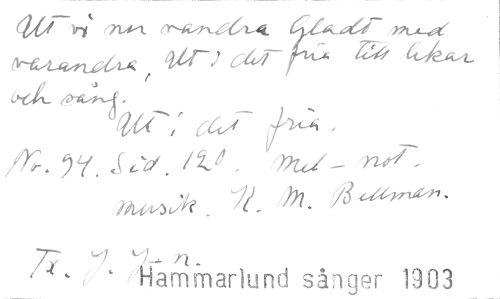 Ut vi nu vandra Gladt med
varandra, Ut i det fria till lekar
och sång.
Ut i det fria.
No. 94. Sid. 120. Mel-not.
musik. K. M. Bellman.
Tx. J. J-n.
Hammarlund sånger 1903